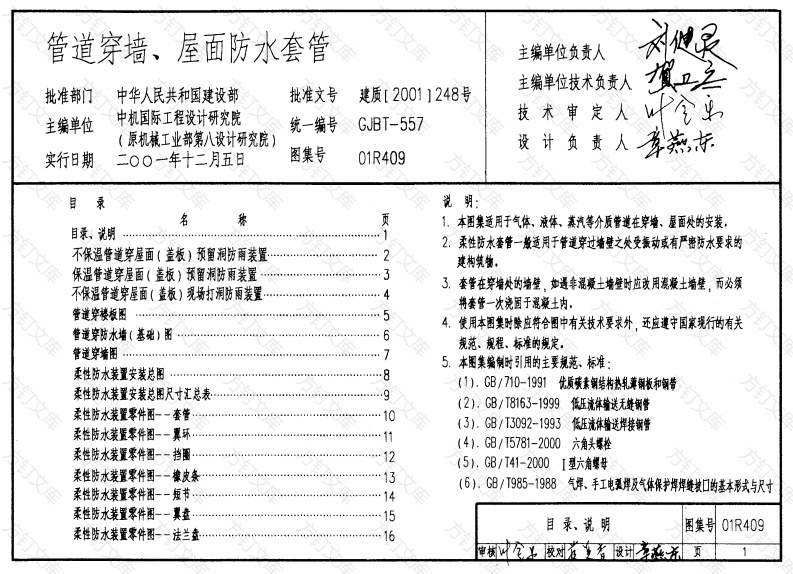 管道穿墙、屋面防水套管
批准部门 中华人民共和国建设部 批准文号 建质[2001]248号
主编单位 中机国际工程设计研究院 统一编号 GJBT-557
(原机械工业部第八设计研究院)
实行日期 二〇〇一年十二月五日 图集号 01R409
主编单位负责人
主编单位技术负责人
技术审定人 叶金水
设计负责人 章燕东
目 录
名 称 页
目录、说明 1
不保温管道穿屋面(盖板)预留洞防雨装置 2
保温管道穿屋面(盖板)预留洞防雨装置 3
不保温管道穿屋面(盖板)现场打洞防雨装置 4
管道穿楼板图 5
管道穿防水墙(基础)图 6
管道穿墙图 7
柔性防水装置安装总图 8
柔性防水装置安装总图尺寸汇总表 9
柔性防水装置零件图--套管 10
柔性防水装置零件图--翼环 11
柔性防水装置零件图--挡圈 12
柔性防水装置零件图--橡皮条 13
柔性防水装置零件图--短节 14
柔性防水装置零件图--翼盘 15
柔性防水装置零件图--法兰盘 16
说 明:
1. 本图集适用于气体、液体、蒸汽等介质管道在穿墙、屋面处的安装。
2. 柔性防水套管一般适用于管道穿过墙壁之处受振动或有严密防水要求的
建构筑物。
3. 套管在穿墙处的墙壁,如遇非混凝土墙壁时应改用混凝土墙壁,而必须
将套管一次浇固于混凝土内。
4. 使用本图集时除应符合图中有关技术要求外,还应遵守国家现行的有关
规范、规程、标准的规定。
5. 本图集编制时引用的主要规范、标准:
(1). GB/710-1991 优质碳素钢结构热轧薄钢板和钢管
(2). GB/T8163-1999 低压流体输送无缝钢管
(3). GB/T3092-1993 低压流体输送焊接钢管
(4). GB/T5781-2000 六角头螺栓
(5). GB/T41-2000 I型六角螺母
(6). GB/T985-1988 气焊、手工电弧焊及气体保护焊焊缝坡口的基本形式与尺寸
目录、说明 图集号 01R409
审核 校对 设计 章燕东 页 1